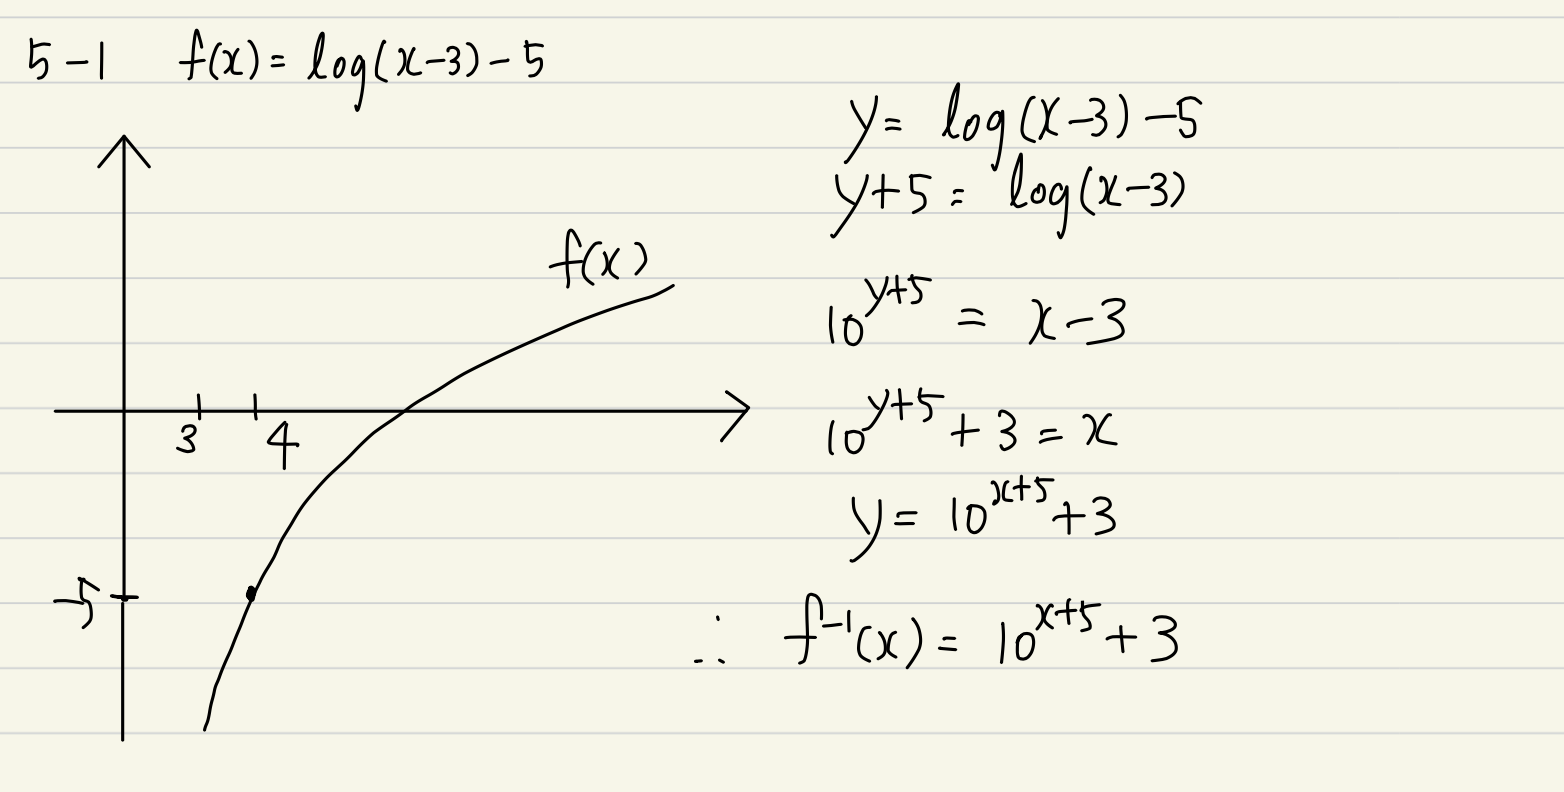 5-1 f(x) = log(x-3) - 5
f(x)
3 4
-5
y = log(x-3) - 5
y+5 = log(x-3)
10^{y+5} = x-3
10^{y+5} + 3 = x
y = 10^{x+5} + 3
∴ f^{-1}(x) = 10^{x+5} + 3